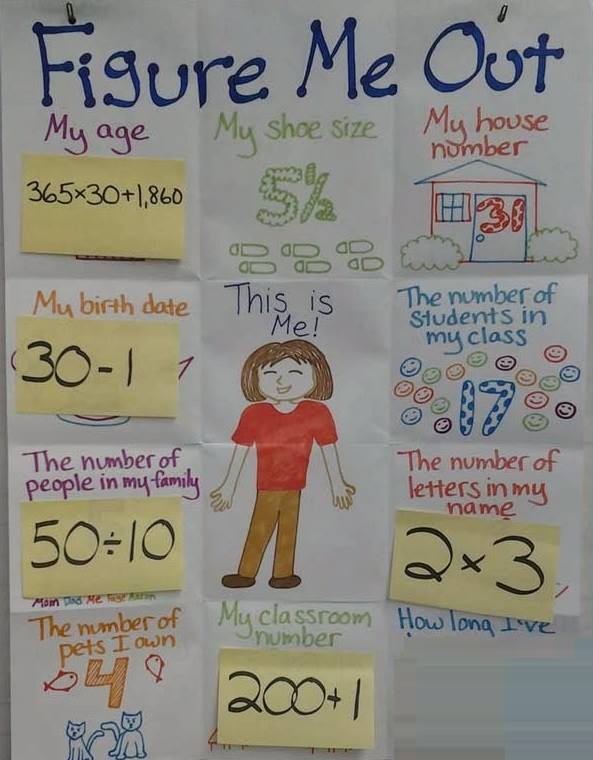 Figure Me Out
My age
365×30+1,860
My shoe size
5½
My house
number
31
My birth date
30-1
This is
Me!
The number of
students in
my class
17
The number of
people in my family
50÷10
Mom Dad Me Paige Aaron
The number of
letters in my
name
2×3
The number of
pets I own
4
My classroom
number
200+1
How long I've